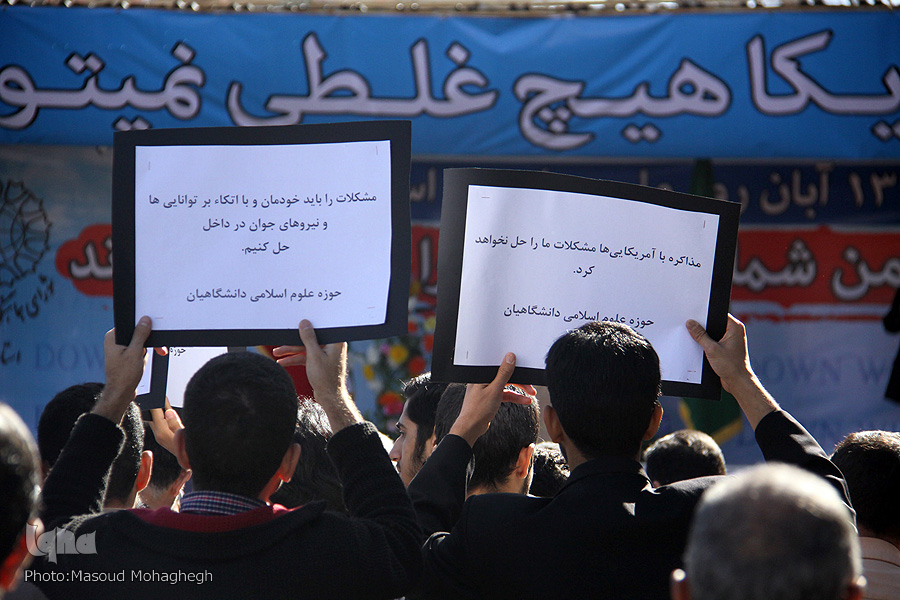 یکا هیچ غلطی نمیتو
۱۳ آبان
من شما
مشکلات را باید خودمان و با اتکاء بر توانایی ها
و نیروهای جوان در داخل
حل کنیم.
حوزه علوم اسلامی دانشگاهیان
مذاکره با آمریکایی‌ها مشکلات ما را حل نخواهد
کرد.
حوزه علوم اسلامی دانشگاهیان
حوزه
DOWN
DOWN W
iqna
Photo:Masoud Mohaghegh